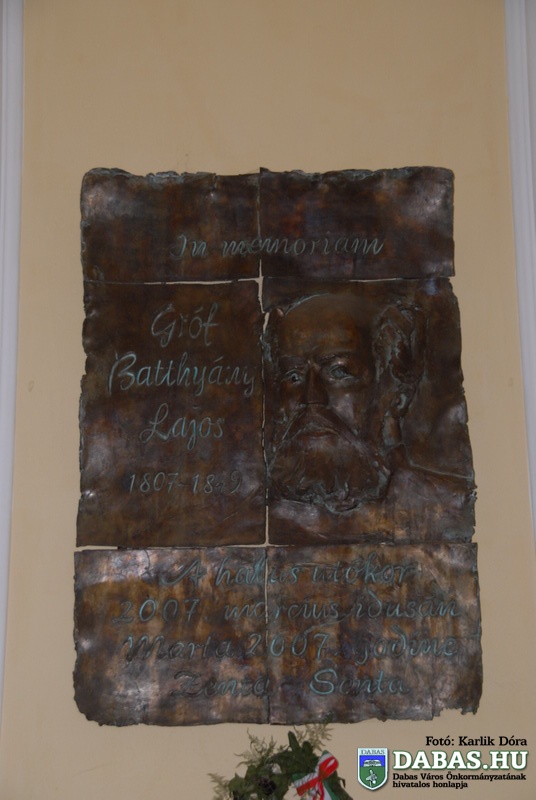 In memoriam
Gróf
Batthyány
Lajos
1807-1849
A hálás utókor
2007 március idusán
Marta 2007 godine
Zenta - Senta
Fotó: Karlik Dóra
DABAS
DABAS.HU
Dabas Város Önkormányzatának
hivatalos honlapja